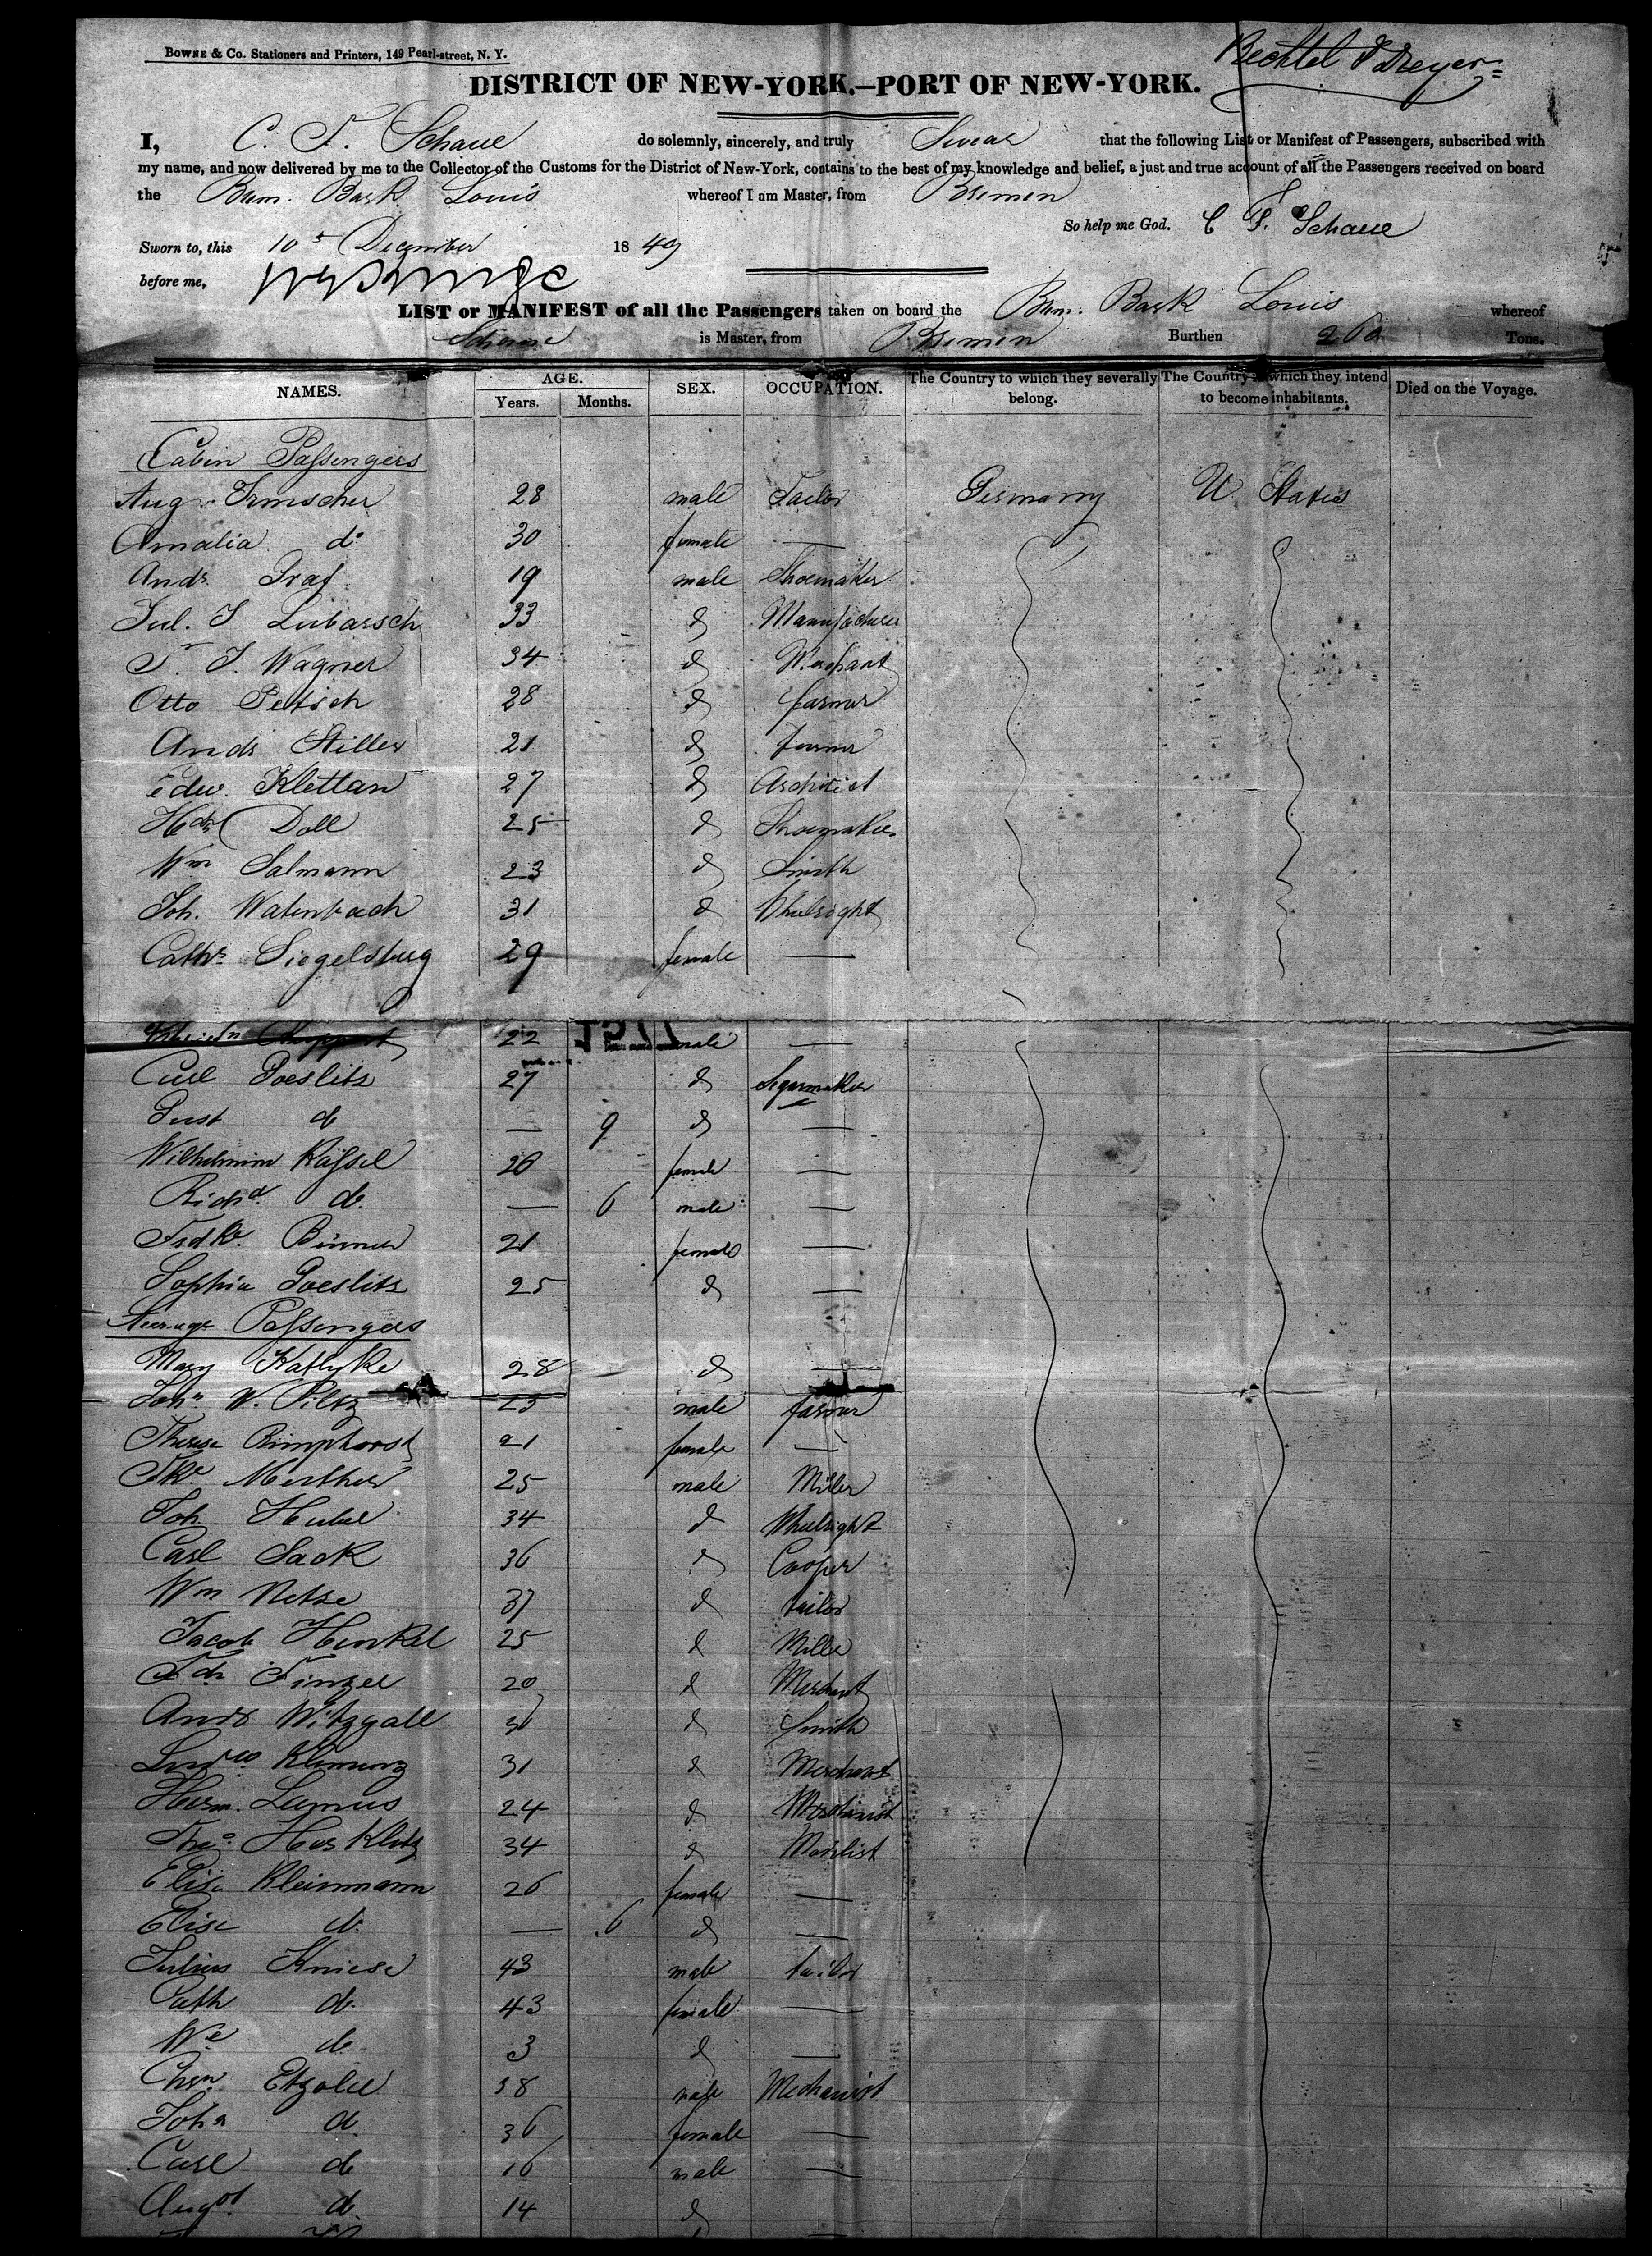 BOWNE & Co. Stationers and Printers, 149 Pearl-street, N. Y.
Bechtel & Dreyer
DISTRICT OF NEW-YORK.—PORT OF NEW-YORK.
I, C. F. Schaue do solemnly, sincerely, and truly Swear that the following List or Manifest of Passengers, subscribed with
my name, and now delivered by me to the Collector of the Customs for the District of New-York, contains to the best of my knowledge and belief, a just and true account of all the Passengers received on board
the Brem. Bark Louis whereof I am Master, from Bremen
So help me God. C F. Schaue
Sworn to, this 10 December 1849
before me,
LIST or MANIFEST of all the Passengers taken on board the Brem. Bark Louis whereof
Schaue is Master, from Bremen Burthen 260 Tons.
NAMES. AGE. SEX. OCCUPATION. The Country to which they severally belong. The Country in which they intend to become inhabitants. Died on the Voyage.
Years. Months.
Cabin Passengers
Aug. Irmscher 28 male Tailor Germany U States
Amalia do 30 female —
Andr. Graf 19 male Shoemaker
Jul. J Lubarsch 33 d Manufacturer
F. J. Wagner 34 d Merchant
Otto Petsch 28 d farmer
Andr Stiller 21 d farmer
Edw. Klettan 27 d Architect
Hch Doll 25 d Shoemaker
Wm Salmann 23 d Smith
Joh. Watenbach 31 d Wheelright
Cath. Siegelsburg 29 female —
22 male —
Carl Poeslitz 27 d Segarmaker
Gust do — 9 d —
Wilhelmine Kassel 26 female —
Richd do — 6 male —
Fredke. Binner 21 female —
Sophia Poeslitz 25 d —
Steerage Passengers
Mary 28 d —
John W. Piltz 25 male farmer
Therese 21 female —
Fkr 25 male Miller
Joh. 34 d Wheelright
Carl Sack 36 d Cooper
Wm Netze 37 d tailor
Jacob Henkel 25 d Miller
Fdr Finzel 20 d Merchant
Andr Witzgall 36 d Smith
31 d Merchant
Herm. 24 d
34 d
Elise Kleinmann 26 female —
Elise do — 6 d —
Julius Kniese 43 male tailor
Cath do 43 female —
We do 3 d —
Chrn Etzold 38 male Mechanist
Joha do 36 female —
Carl do 16 male —
Augst. do 14 d —